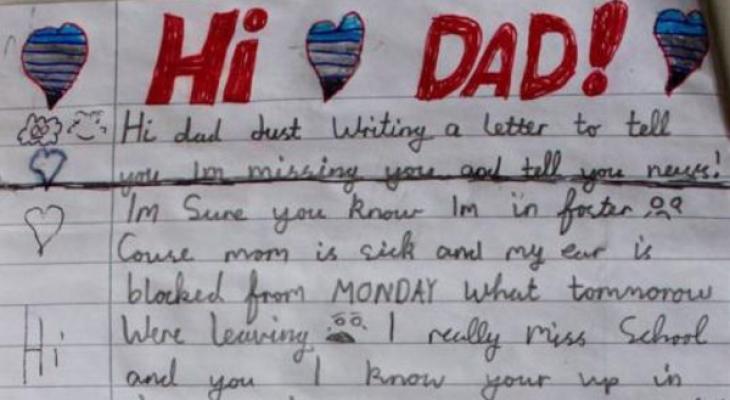 Hi DAD!
Hi dad Just Writing a letter to tell
you Im missing you and tell you news!
Im Sure you know Im in foster
Couse mom is sick and my ear is
blocked from MONDAY What tommorow
Were leaving I really miss School
Hi
and you I know your up in